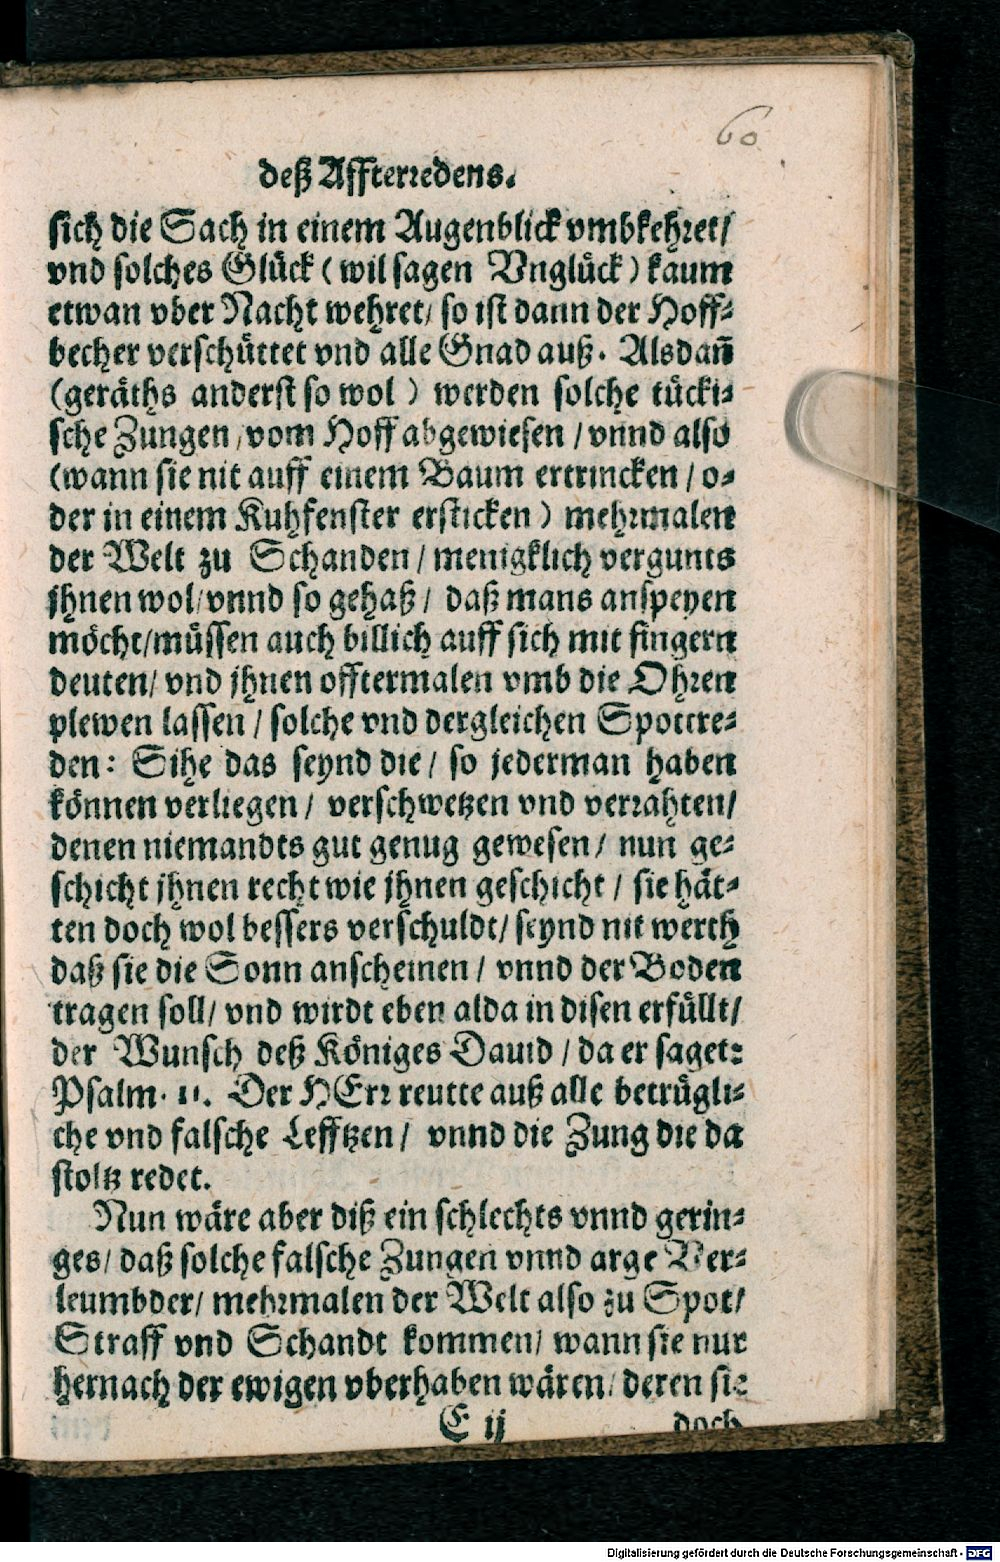 60
deß Affterredens.
sich die Sach in einem Augenblick vmbkehret/
vnd solches Glück (wil sagen Vnglück) kaum
etwan vber Nacht wehret/ so ist dann der Hoff-
becher verschüttet vnd alle Gnad auß. Alsdañ
(geräths anderst so wol) werden solche tücki-
sche Zungen/vom Hoff abgewiesen/vnnd also
(wann sie nit auff einem Baum ertrincken/o-
der in einem Kuhfenster ersticken) mehrmalen
der Welt zu Schanden/menigklich vergunts
jhnen wol/vnnd so gehaß/ daß mans anspeyen
möcht/müssen auch billich auff sich mit fingern
deuten/ vnd jhnen offtermalen vmb die Ohren
plewen lassen/solche vnd dergleichen Spottre-
den: Sihe das seynd die/ so jederman haben
können verliegen/ verschwetzen vnd verrahten/
denen niemandts gut genug gewesen/ nun ge-
schicht jhnen recht wie jhnen geschicht/ sie hät-
ten doch wol bessers verschuldt/seynd nit werth
daß sie die Sonn anscheinen/ vnnd der Boden
tragen soll/ vnd wirdt eben alda in disen erfüllt/
der Wunsch deß Königes Dauid/da er saget:
Psalm. 11. Der HErr reutte auß alle betrügli-
che vnd falsche Lefftzen/ vnnd die Zung die da
stoltz redet.
Nun wäre aber diß ein schlechts vnnd gerin-
ges/ daß solche falsche Zungen vnnd arge Ver-
leumbder/ mehrmalen der Welt also zu Spot/
Straff vnd Schandt kommen/ wann sie nur
hernach der ewigen vberhaben wären/ deren sie
E ij
doch
Digitalisierung gefördert durch die Deutsche Forschungsgemeinschaft - DFG